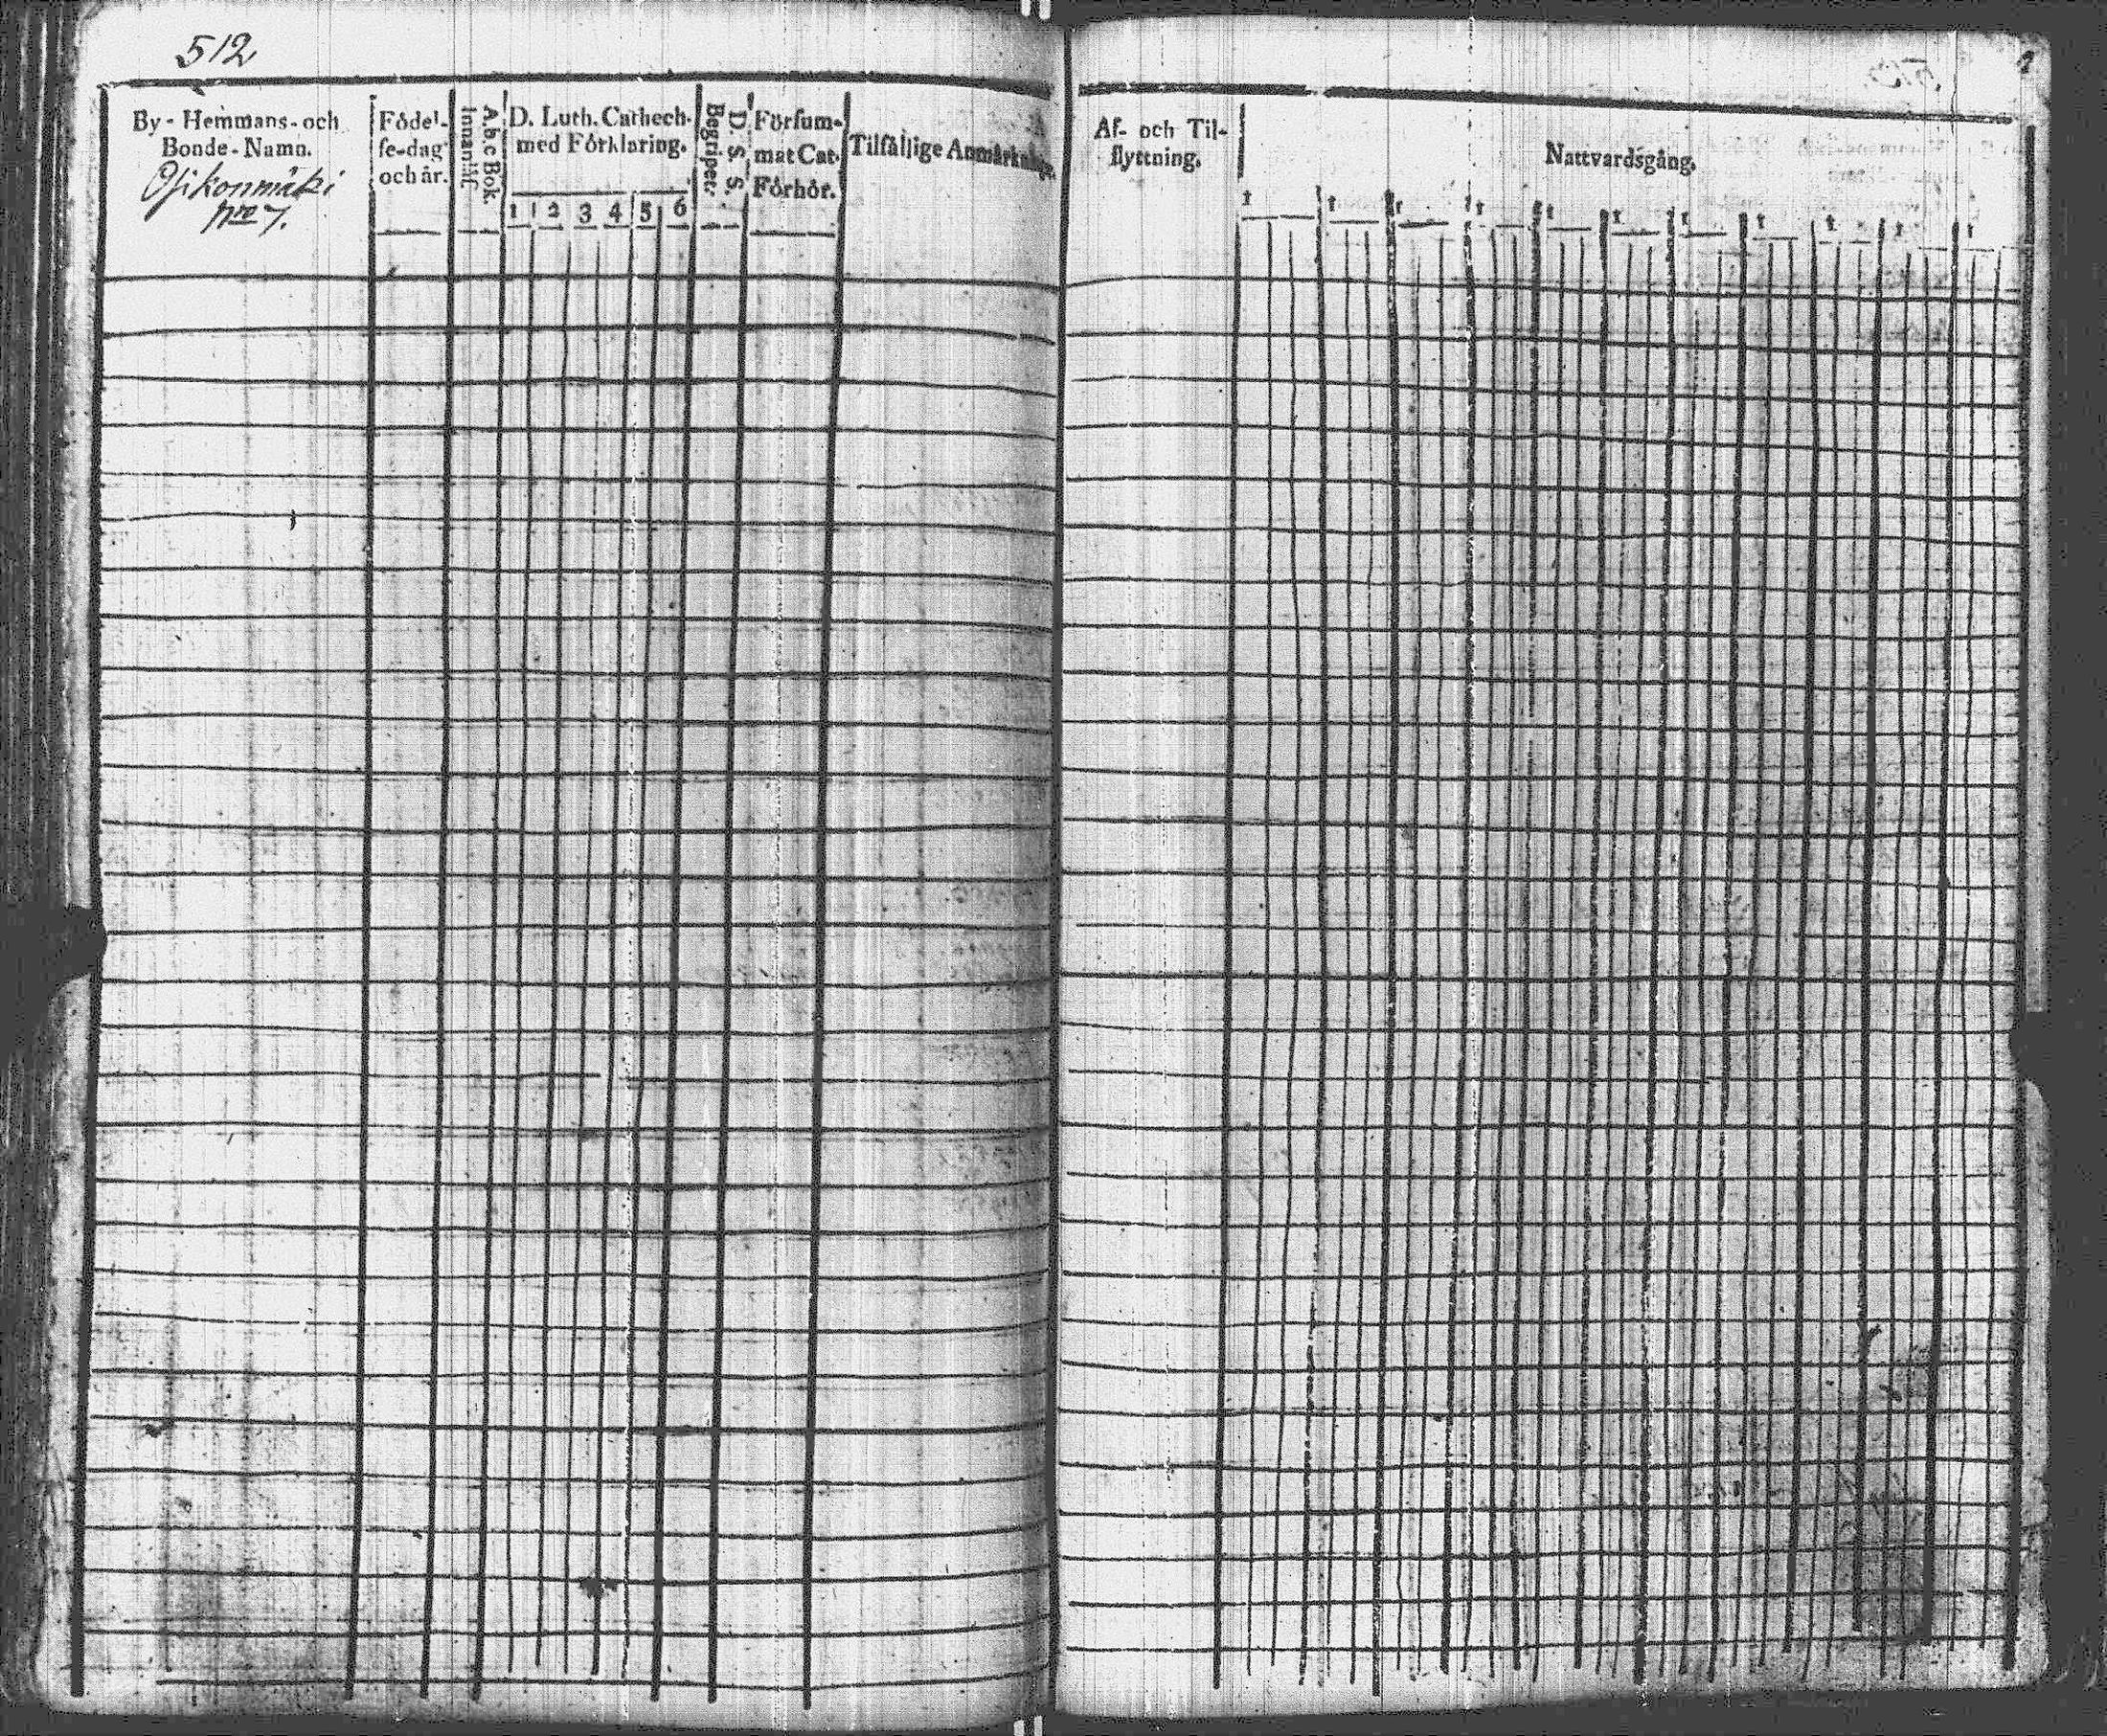 512
By-Hemmans-och
Bonde-Namn.
Osikonmäki
No 7.
Födel-
se-dag
och år.
Innanläs.
A.b.c Bok.
D. Luth. Cathech.
med Förklaring.
1 2 3 4 5 6
Begripet.
D. S. S.
Försum-
mat Cat.
Förhör.
Tilfällige Anmärkningar.
Af- och Til-
flyttning.
Nattvardsgång.
1 1 1 1 1 1 1 1 1 1 1